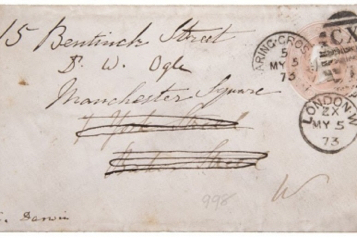 15 Bentinck Street
Dr. W. Ogle
Manchester Square
Street
Street
998
W
C. Darwin
CHARING·CROSS
5
MY 5
73
CX
LONDON·W
ZX
MY 5
73